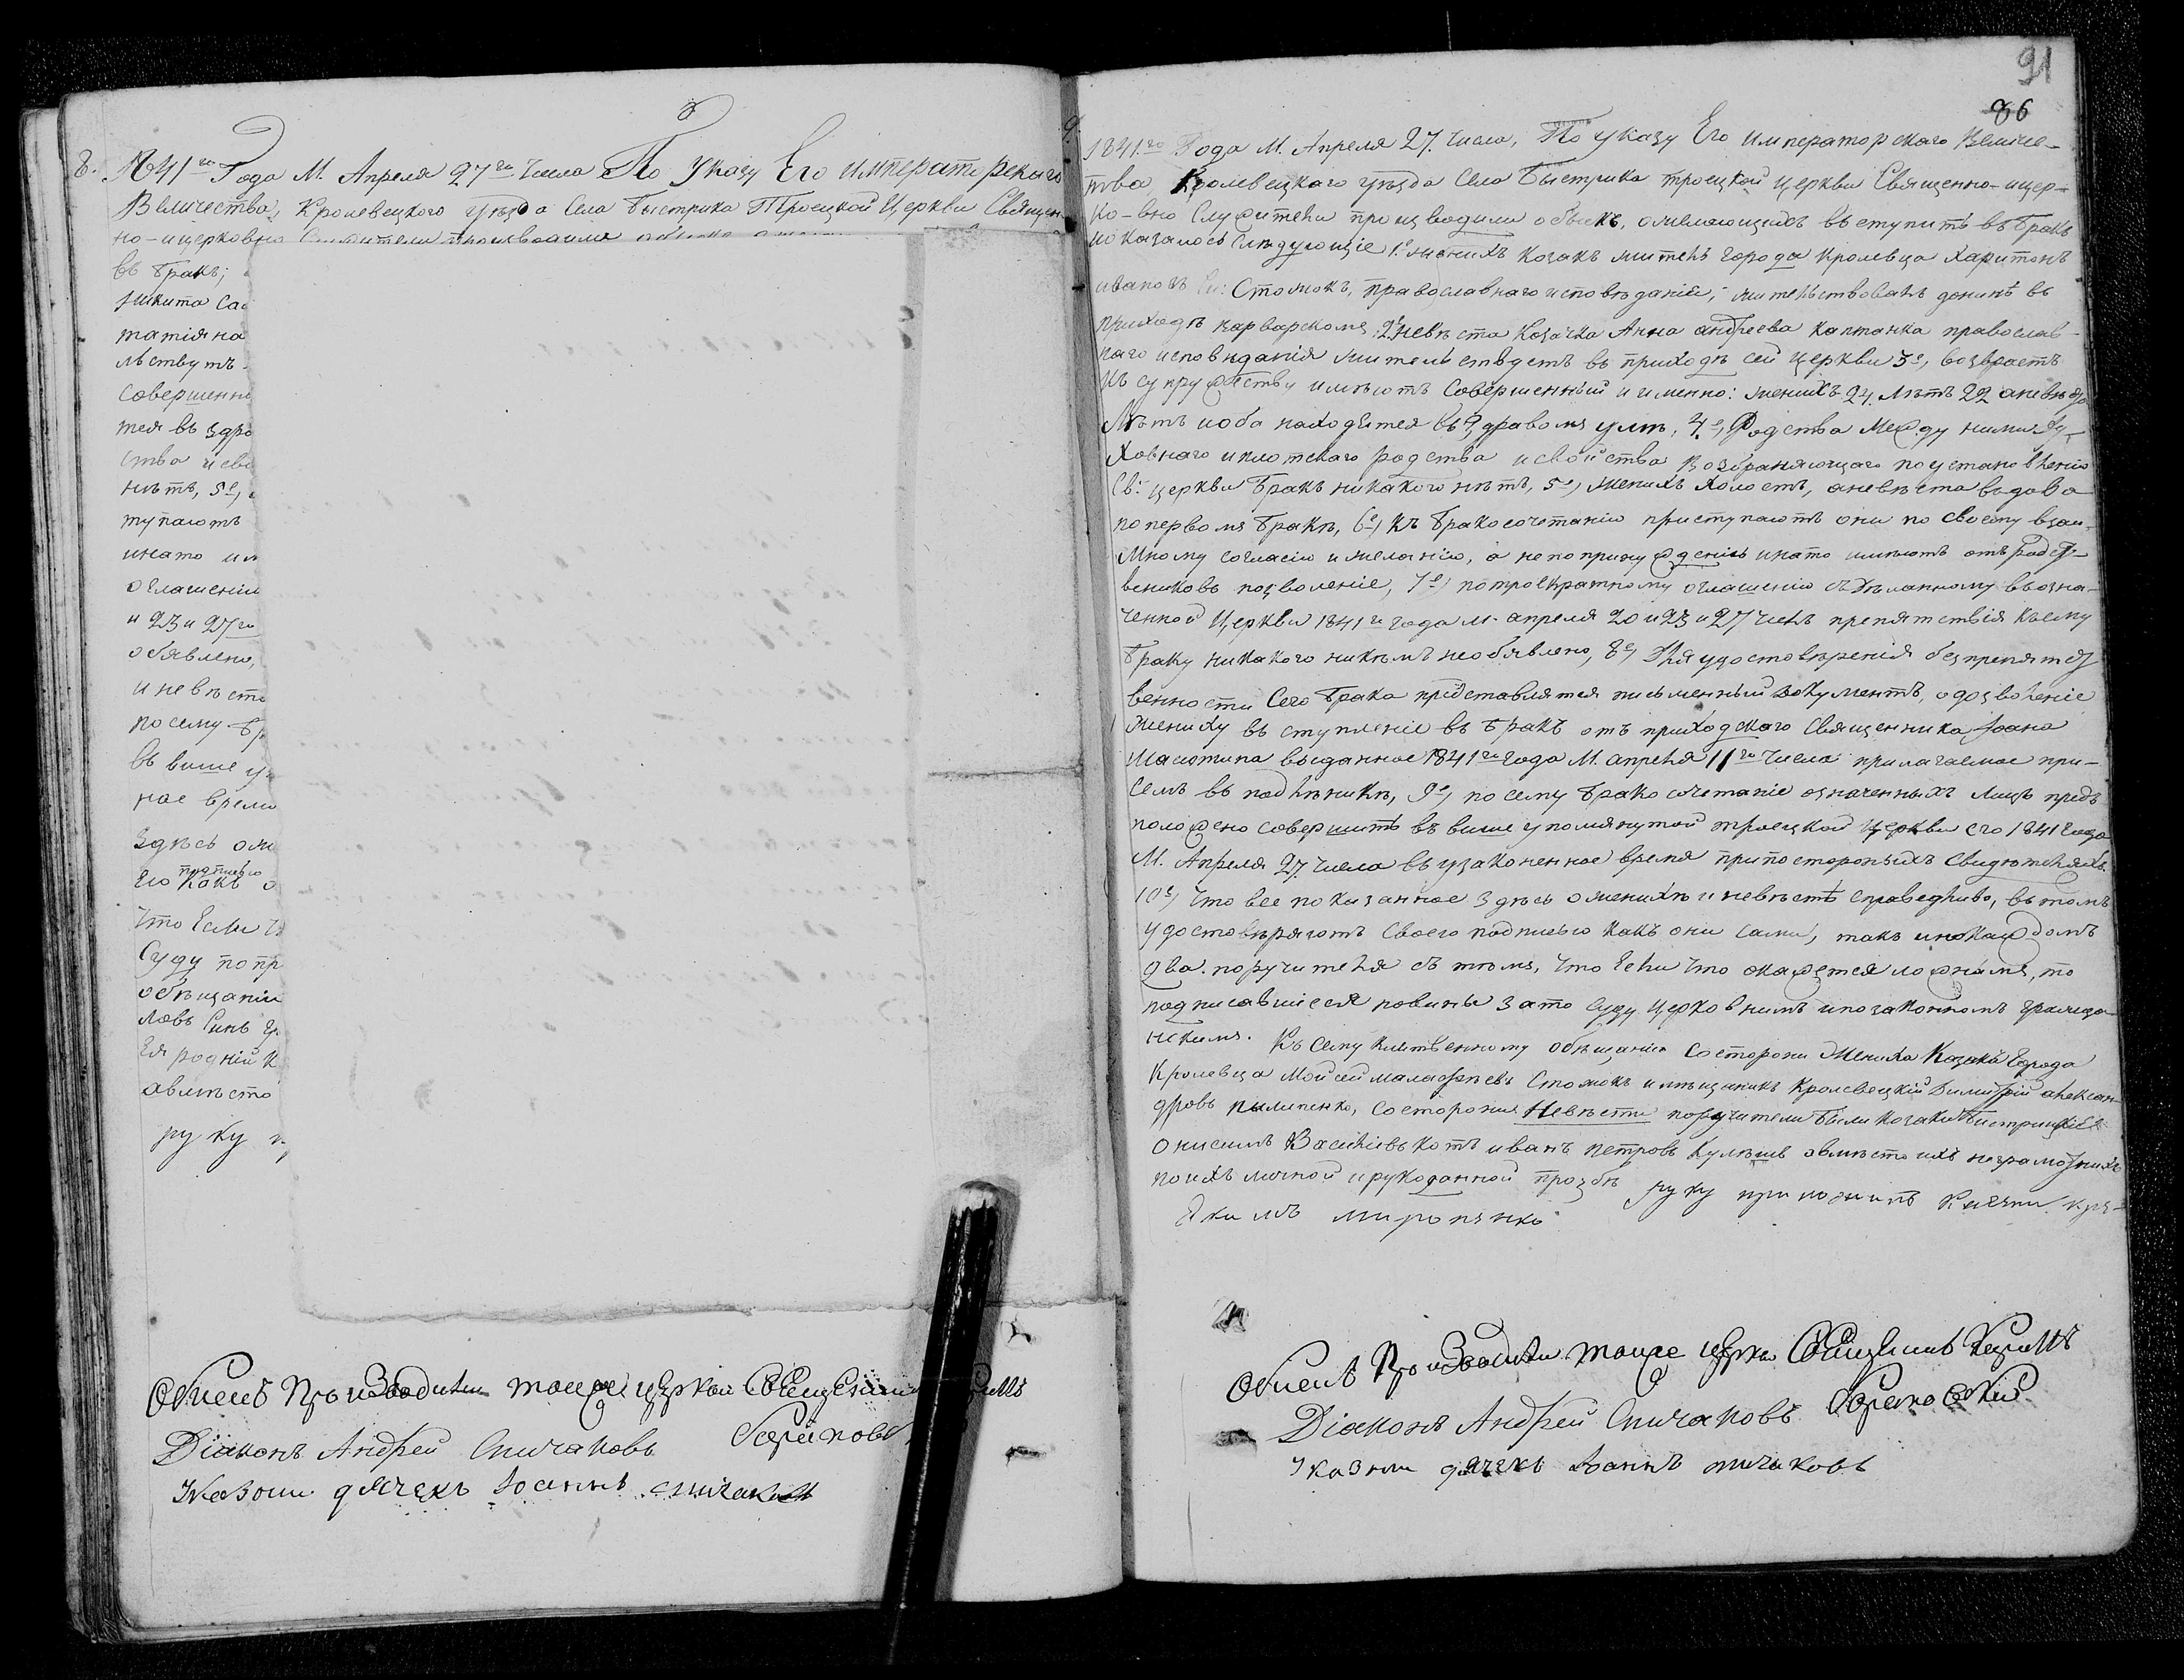 8. 1841го Года М. Апреля 27го Числа По Указу Его Императорскаго
Величества, Кролевецкого уезда Села Быстрика Троецкой Церкви Священ-
но-ицерковно
въ бракъ;
Никита
татіяна
льствутъ
совершенны
тся въ здра
ства исво
нѣтъ, 5е,
тупаютъ
инато им
оглашенію
и 23 и 27го
обявлено,
и невѣста
посему бр
въ више уп
ное время
Здѣсь ожи
подписью
Его какъ о
Что Если Чт
Суду попр
обѣщанію
ловъ Синъ
Ея родній К
авмѣсто
руку п
Обискъ Производили тоиже церкви Священникъ
Діаконъ Андрей Спичаковъ
Указони дячекъ Іоаннъ Спичаковъ
91
86
9.
1841го Года М. Апреля 27. Числа, По указу Его Императорскаго Величе-
тва, Кролевецкаго уѣзда Села Быстрика троецкой церкви Священно-ицер-
ко-вно Служители производили обыскъ, ожелающихъ вступить въ бракъ
ио казалось Слѣдующіе 1е женихъ Козакъ житель города Кролевца Харитонъ
ивановъ Си: Стожокъ, православнаго исповѣданія, жительствовалъ донинѣ въ
приходѣ варварскомъ, 2е Невѣста Козачка Анна андреева каптанка православ-
наго исповѣданія жительствуетъ въ приходѣ сей церкви 3е, возврастъ
къ супружеству имѣютъ Совершенный и именно: женихъ 24. Лѣтъ 22 аневѣста
Лѣтъ иоба находятся въ здравомъ умѣ, 4е, Родства Между ними ду-
ховнаго иплотскаго родства исвойства возбраняющаго поустановленію
Св: церкви бракъ никакого нѣтъ, 5е, Женихъ холостъ, аневѣста вдова
поперво мъ бракѣ, 6е, къ бракосочетанію приступаютъ они по своему взаи-
мному согласію и желанію, а непопринужденію инато имѣютъ отъ родст-
венниковъ позволеніе, 7е, потроекратному оглашенію сдѣланному въозна-
ченной Церкви 1841го года м. апреля 20 и 23 и 27 числъ препятствія къ сему
браку никакого никѣмъ необявлено, 8е, Для удостовѣренія безпрепятст
венности Сего брака представлятся письменный документъ, одозволеніе
Жениху въ ступленіе въ бракъ отъ приходскаго Священника Іоана
Масютина выданное 1841го года М. апреля 11го Числа прилагаемое при-
семъ въ подлѣникѣ, 9е, посему бракосочетаніе означенныхъ лицъ предъ
положено совершить въ више упомянутой троецкой Церкви сего 1841 года
М. Апреля 27. Числа въ узаконенное время припостороньихъ свидѣтеляхъ.
10е, Что все показанное здѣсь оженихѣ и невѣстѣ справедливо, въ томъ
удостовѣряютъ Своего подписью какъ они сами, такъ ипокаждомъ
два. поручителя съ тѣмъ, что Если что окажется ложнымъ, то
подписавшіеся повины зато Суду Церковнимъ ипозаконномъ гражда-
нскимъ. Къ сему клятвенному обѣщанію Состорони Жениха Козакъ города
Кролевца Мойсей малафѣевъ Стожокъ имѣщаникъ Кролевецкій Димитрій алексан-
дровъ пилипенко, Состорони Невѣсти поручители были козаки Бистрицкіе
онисимъ Васильевъ котъ иванъ петровъ Кулѣшъ авмѣсто ихъ неграмотнихъ
поихъ личной ирукоданной прозбѣ руку приложилъ
Якимъ миропенко
Обискъ Производили тоиже церкви Священикъ
Діаконъ Андрей Спичаковъ
Указни дячекъ Іоаннъ спичаковъ